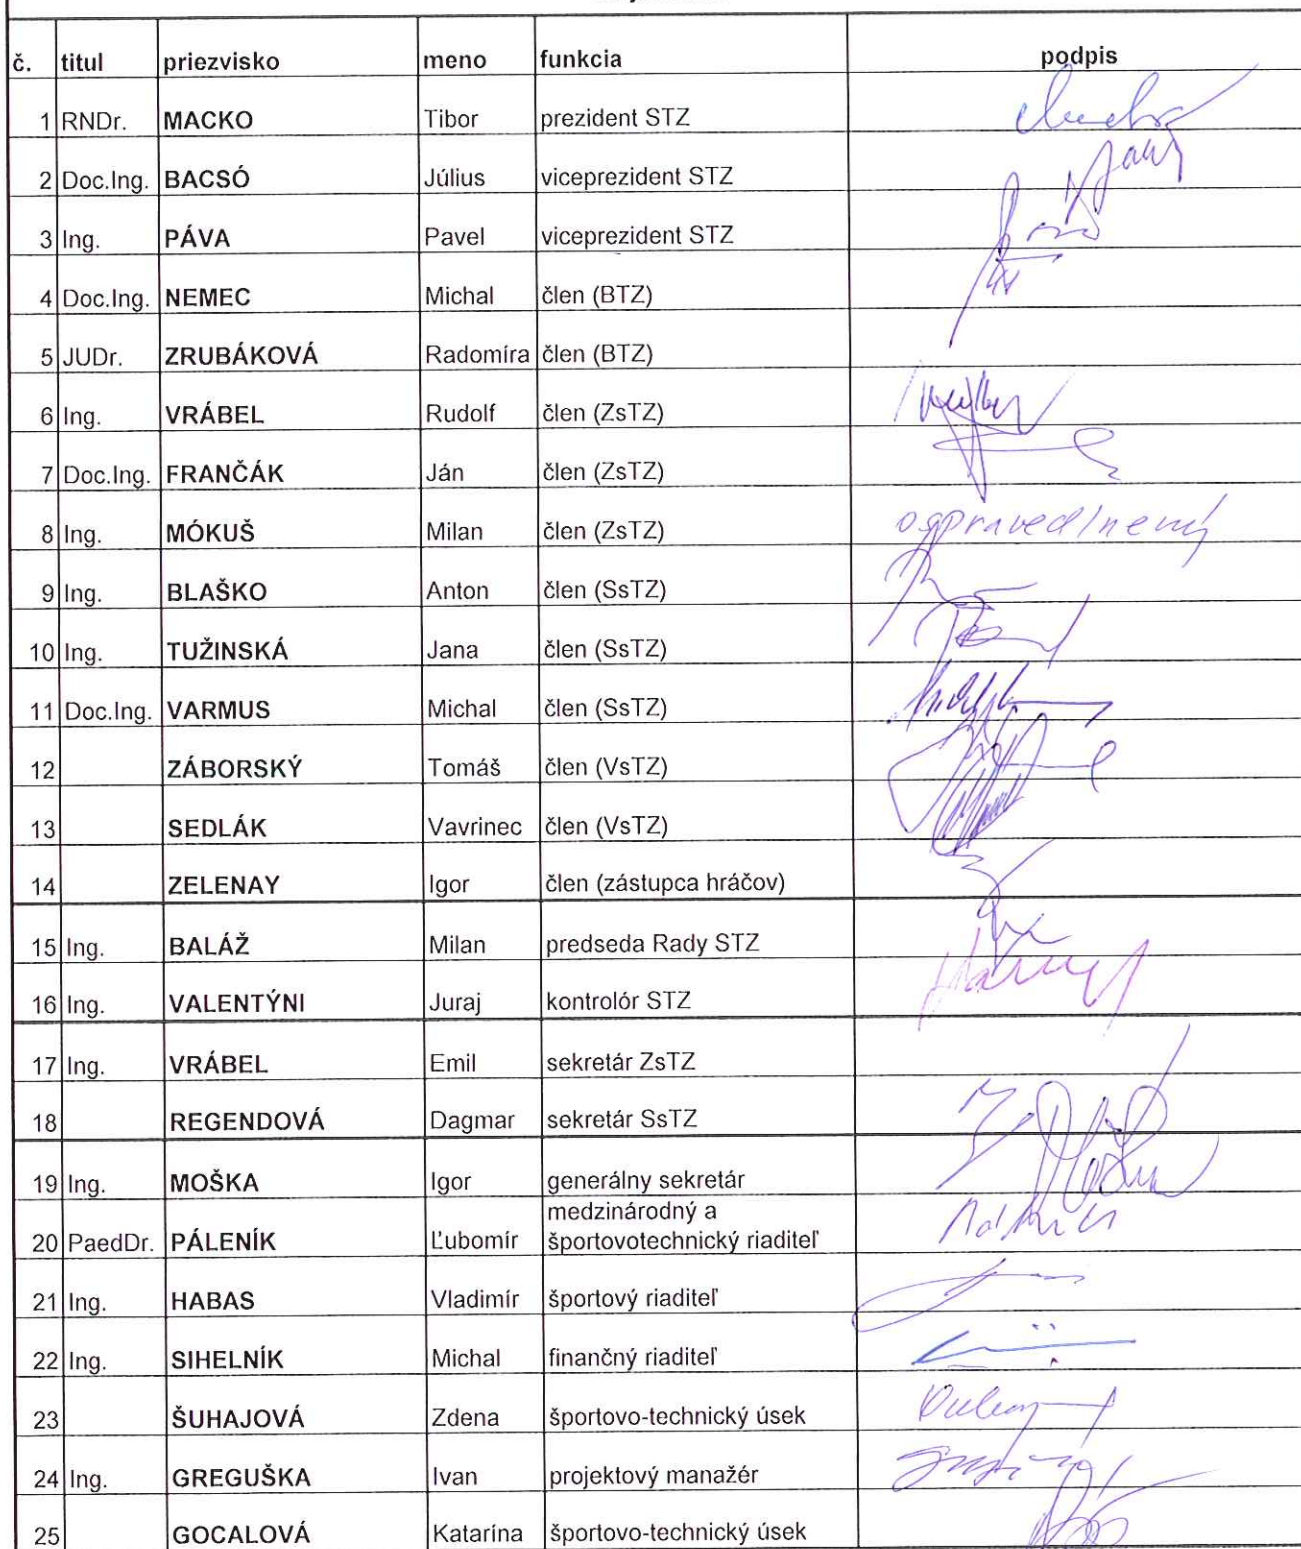 č. titul priezvisko meno funkcia podpis
1 RNDr. MACKO Tibor prezident STZ
2 Doc.Ing. BACSÓ Július viceprezident STZ
3 Ing. PÁVA Pavel viceprezident STZ
4 Doc.Ing. NEMEC Michal člen (BTZ)
5 JUDr. ZRUBÁKOVÁ Radomíra člen (BTZ)
6 Ing. VRÁBEL Rudolf člen (ZsTZ)
7 Doc.Ing. FRANČÁK Ján člen (ZsTZ)
8 Ing. MÓKUŠ Milan člen (ZsTZ) ospravedlnený
9 Ing. BLAŠKO Anton člen (SsTZ)
10 Ing. TUŽINSKÁ Jana člen (SsTZ)
11 Doc.Ing. VARMUS Michal člen (SsTZ)
12 ZÁBORSKÝ Tomáš člen (VsTZ)
13 SEDLÁK Vavrinec člen (VsTZ)
14 ZELENAY Igor člen (zástupca hráčov)
15 Ing. BALÁŽ Milan predseda Rady STZ
16 Ing. VALENTÝNI Juraj kontrolór STZ
17 Ing. VRÁBEL Emil sekretár ZsTZ
18 REGENDOVÁ Dagmar sekretár SsTZ
19 Ing. MOŠKA Igor generálny sekretár
medzinárodný a
20 PaedDr. PÁLENÍK Ľubomír športovotechnický riaditeľ
21 Ing. HABAS Vladimír športový riaditeľ
22 Ing. SIHELNÍK Michal finančný riaditeľ
23 ŠUHAJOVÁ Zdena športovo-technický úsek
24 Ing. GREGUŠKA Ivan projektový manažér
25 GOCALOVÁ Katarína športovo-technický úsek